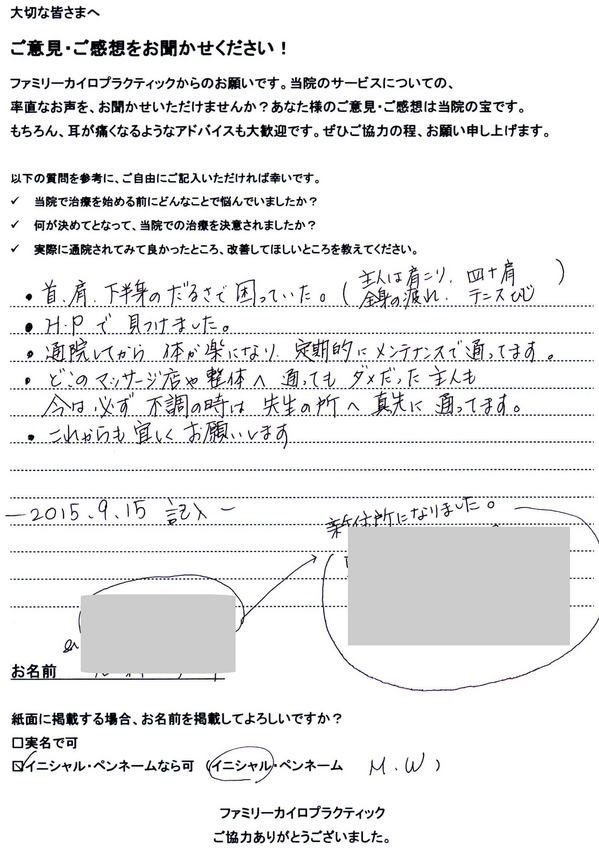 大切な皆さまへ
ご意見・ご感想をお聞かせください！
ファミリーカイロプラクティックからのお願いです。当院のサービスについての、
率直なお声を、お聞かせいただけませんか？あなた様のご意見・ご感想は当院の宝です。
もちろん、耳が痛くなるようなアドバイスも大歓迎です。ぜひご協力の程、お願い申し上げます。
以下の質問を参考に、ご自由にご記入いただければ幸いです。
✓ 当院で治療を始める前にどんなことで悩んでいましたか？
✓ 何が決めてとなって、当院での治療を決意されましたか？
✓ 実際に通院されてみて良かったところ、改善してほしいところを教えてください。
・首、肩、下半身のだるさで困っていた。（主人は肩こり、四十肩
全身の疲れ、テニスひじ）
・H.Pで見つけました。
・通院してから体が楽になり、定期的にメンテナンスで通ってます。
・どこのマッサージ店や整体へ通ってもダメだった主人も
今は必ず不調の時は先生の所へ真先に通ってます。
・これからも宜しくお願いします
－2015.9.15 記入－
新住所になりました。
お名前
紙面に掲載する場合、お名前を掲載してよろしいですか？
□実名で可
☑イニシャル・ペンネームなら可（イニシャル・ペンネーム M.W）
ファミリーカイロプラクティック
ご協力ありがとうございました。